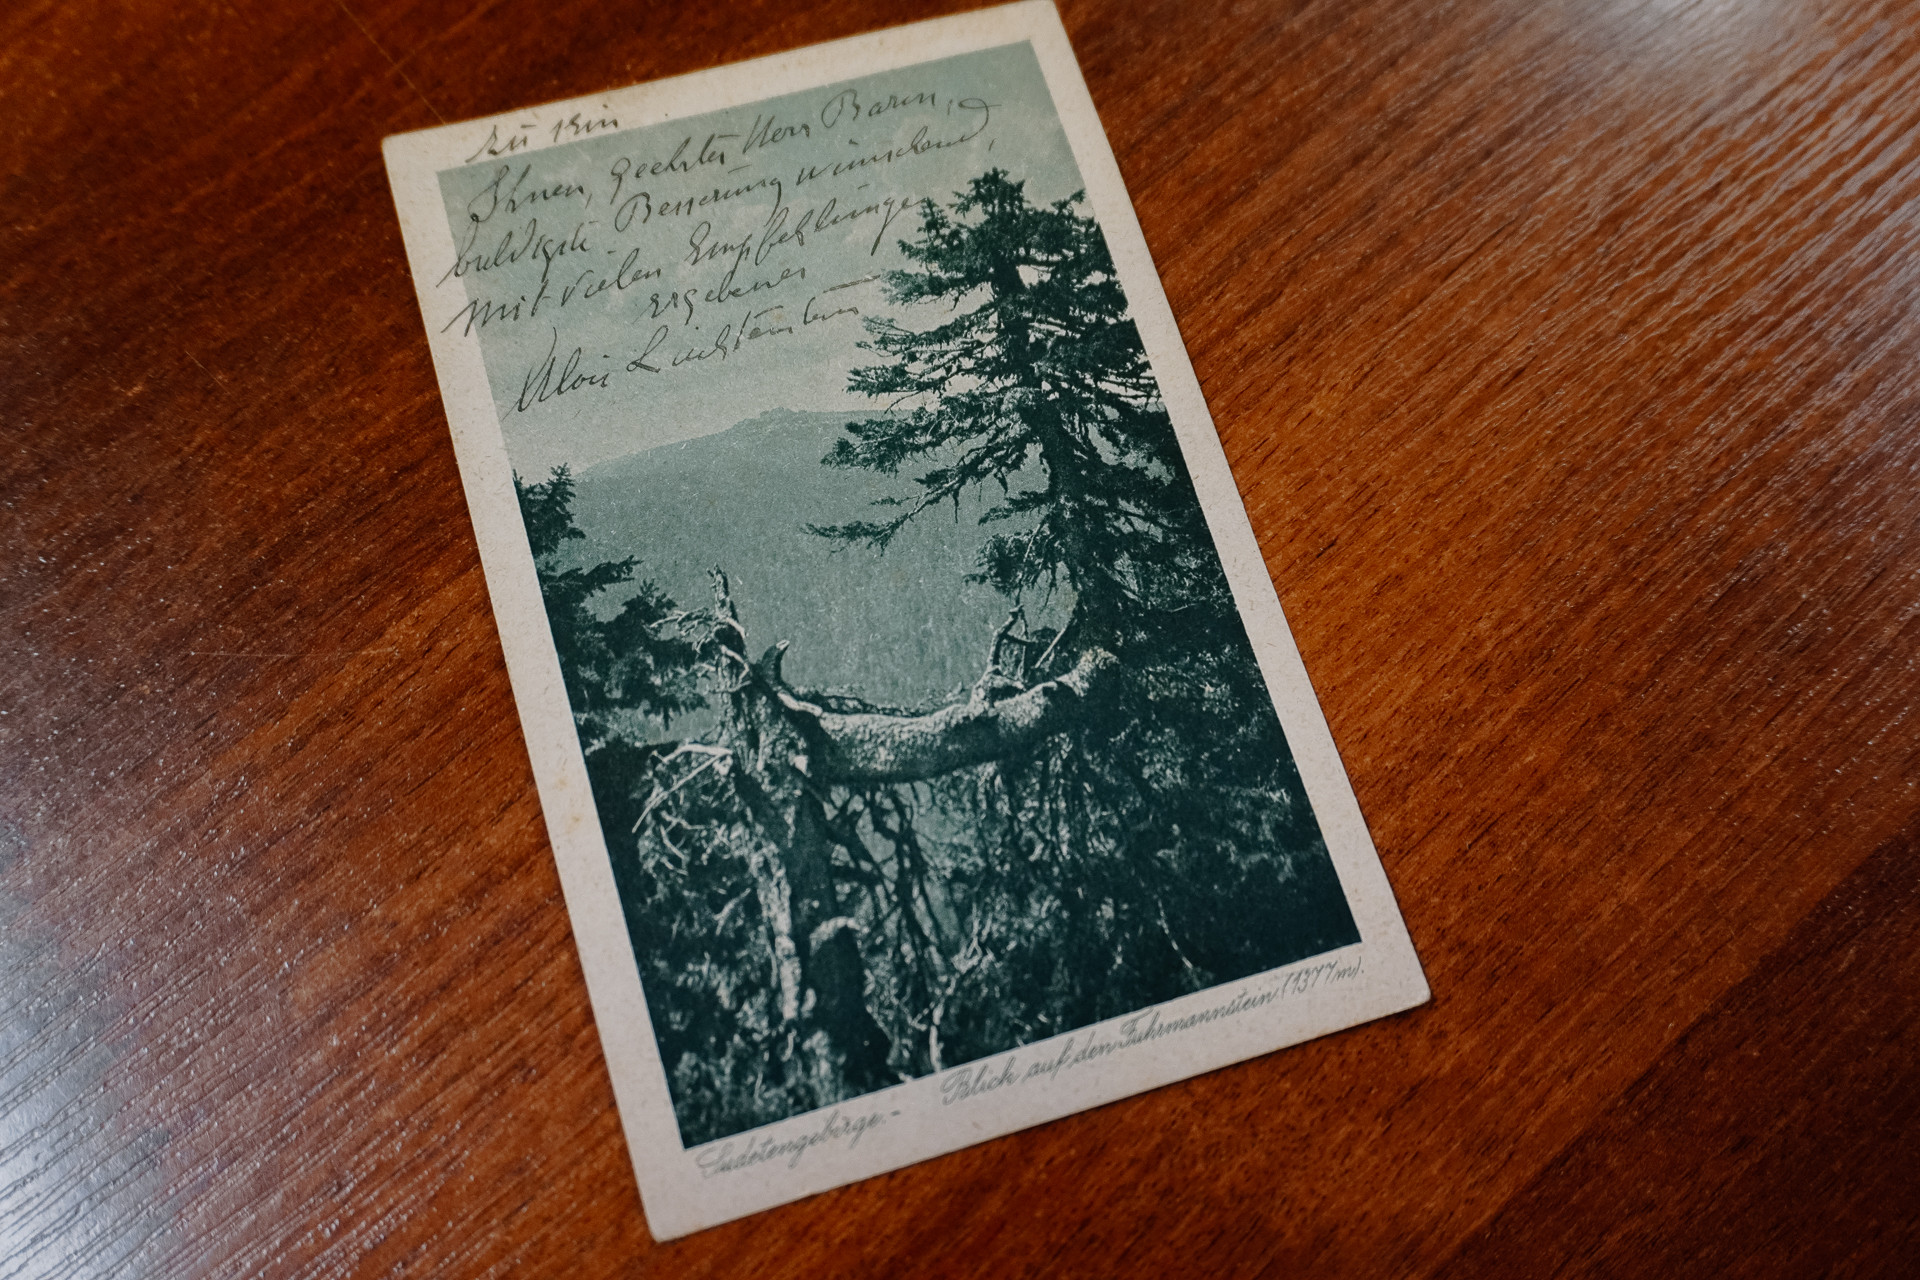 Ihnen, geehrter Herr Baron,
baldigste Besserung wünschend,
mit vielen Empfehlungen
ergebener
Alois Liechtenstein
Sudetengebirge.- Blick auf den Fuhrmannstein (1377m).